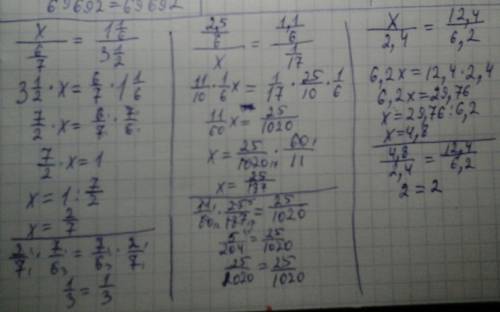 69692=69692
x / (6/7) = 1 1/6 / 3 1/2
3 1/2 · x = 6/7 · 1 1/6
7/2 · x = 6/7 · 7/6
7/2 · x = 1
x = 1 : 7/2
x = 2/7
1/3 = 1/3
1,1/6 / 1/17
11/10 · 1/6 x = 1/17 · 25/10 · 1/6
11/60 x = 25/1020
x = 25/1020 · 60/11
x = 25/187
11/60 · 25/187 = 25/1020
5/204 = 25/1020
25/1020 = 25/1020
x/2,4 = 12,4/6,2
6,2x = 12,4 · 2,4
6,2x = 29,76
x = 29,76 : 6,2
x = 4,8
4,8/2,4 = 12,4/6,2
2 = 2